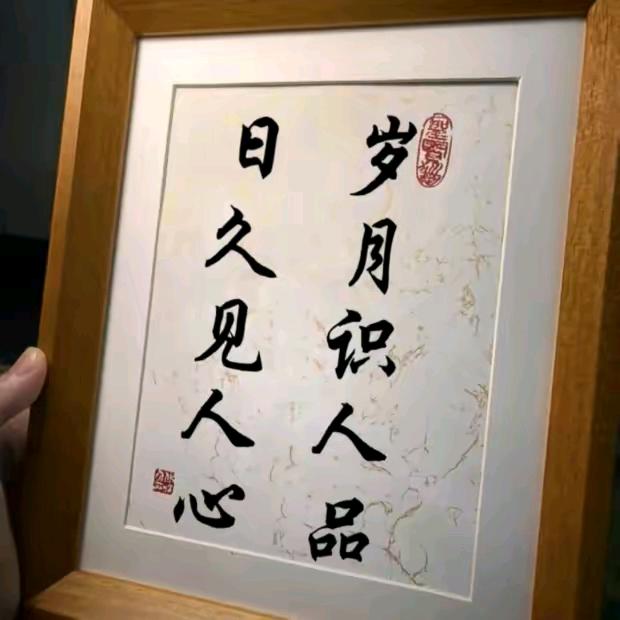 岁月识人品
日久见人心